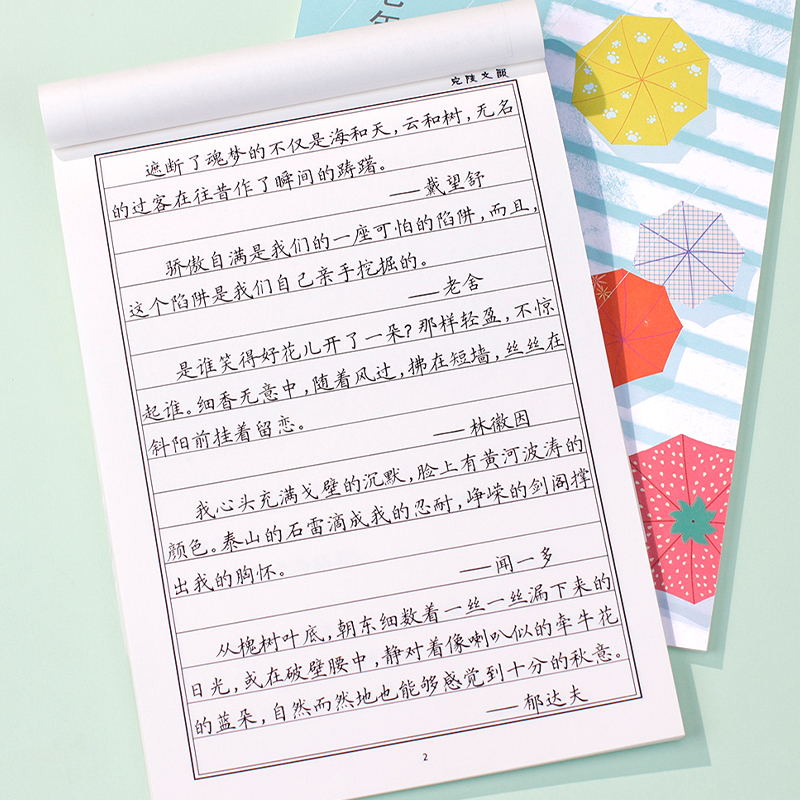 遮断了魂梦的不仅是海和天，云和树，无名
的过客在往昔作了瞬间的踌躇。
——戴望舒
骄傲自满是我们的一座可怕的陷阱，而且，
这个陷阱是我们自己亲手挖掘的。
——老舍
是谁笑得好花儿开了一朵？那样轻盈，不惊
起谁。细香无意中，随着风过，拂在短墙，丝丝在
斜阳前挂着留恋。
——林徽因
我心头充满戈壁的沉默，脸上有黄河波涛的
颜色。泰山的石雷滴成我的忍耐，峥嵘的剑阁撑
出我的胸怀。
——闻一多
从槐树叶底，朝东细数着一丝一丝漏下来的
日光，或在破壁腰中，静对着像喇叭似的牵牛花
的蓝朵，自然而然地也能够感觉到十分的秋意。
——郁达夫
2